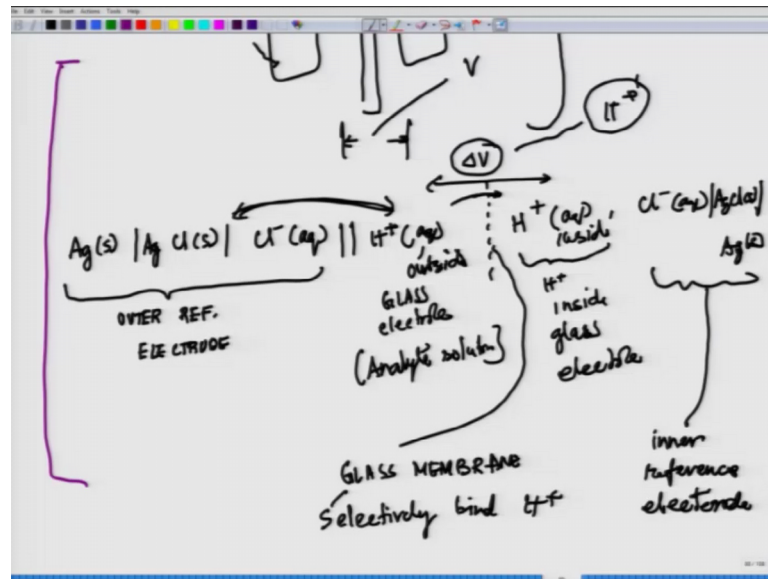 File Edit View Insert Actions Tools Help
V
H⁺
ΔV
Ag(s) | Ag Cl(s) | Cl⁻ (aq) || H⁺ (aq), outside
H⁺ (aq), inside,
Cl⁻ (aq) | AgCl(s) |
Ag(s)
OUTER REF.
ELECTRODE
GLASS
electrode
(Analyte solution)
H⁺
inside
glass
electrode
GLASS MEMBRANE
Selectively bind H⁺
inner
reference
electrode